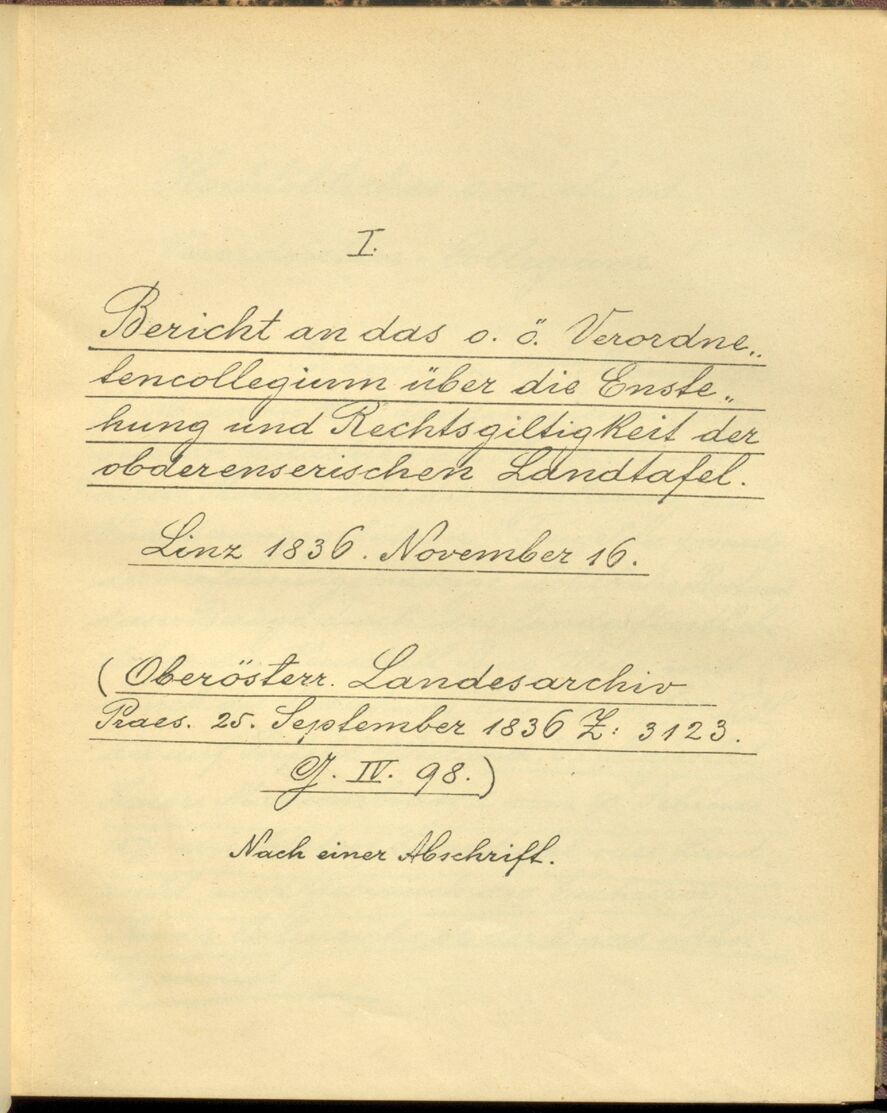 I.
Bericht an das o. ö. Verordne„
tencollegium über die Enste„
hung und Rechtsgiltigkeit der
obderenserischen Landtafel.
Linz 1836. November 16.
(Oberösterr. Landesarchiv
Praes. 25. September 1836 Z: 3123.
G. IV. 98.)
Nach einer Abschrift.